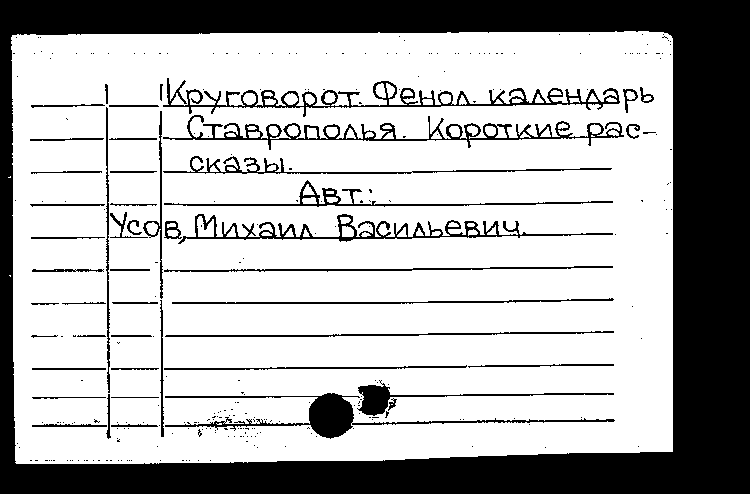 Круговорот. Фенол. календарь
Ставрополья. Короткие рас-
сказы.
Авт.:
Усов, Михаил Васильевич.